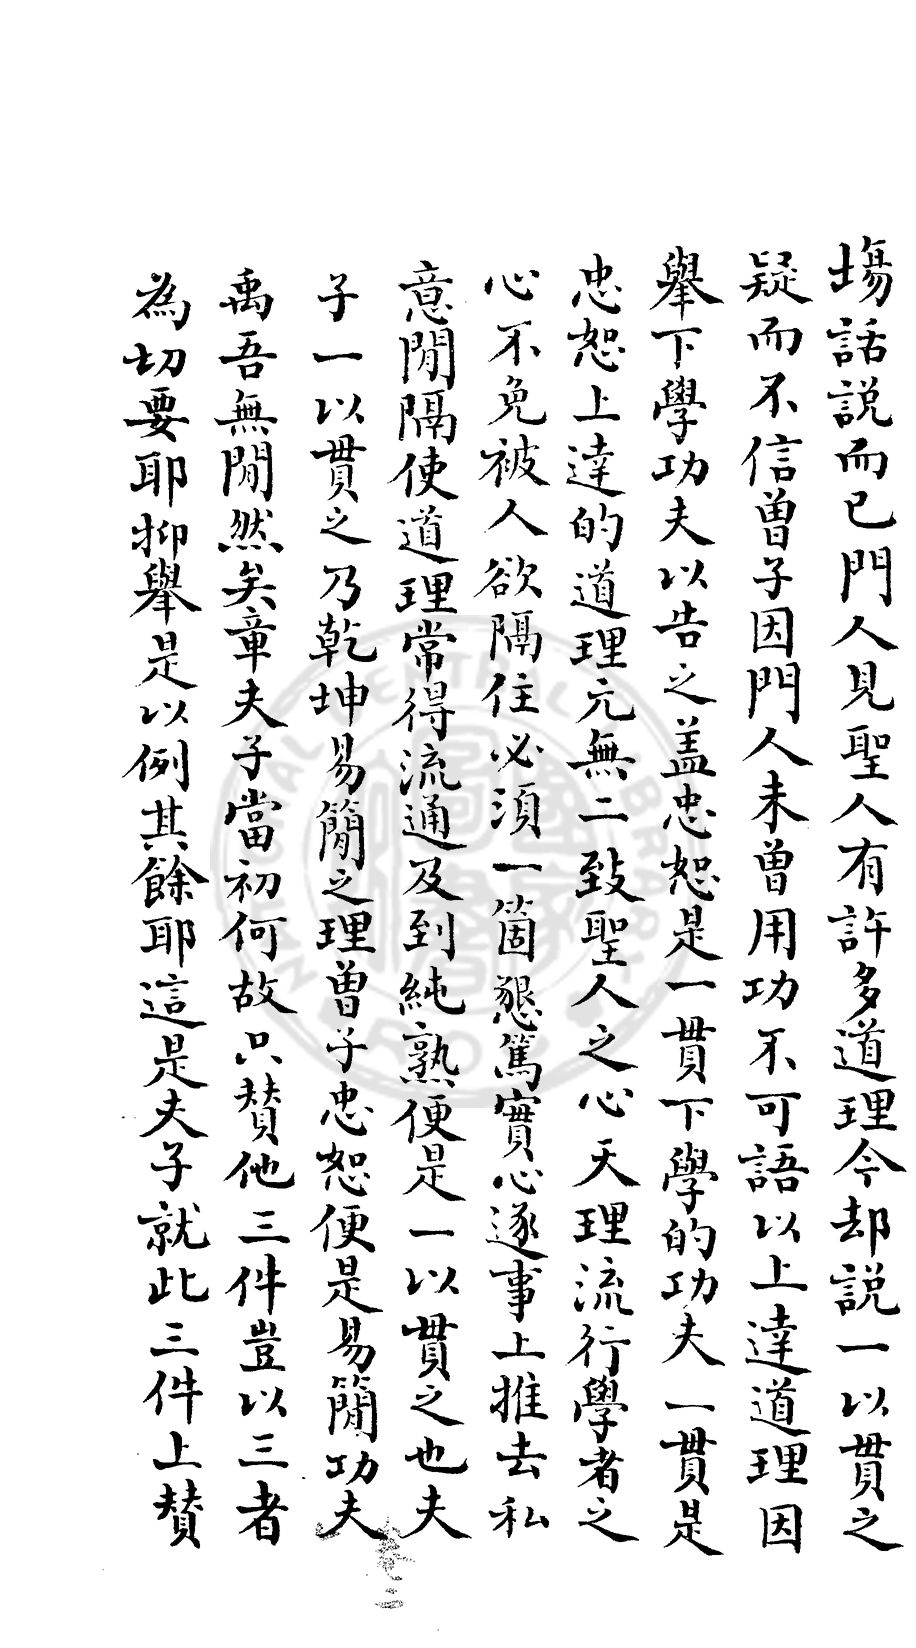 塲話説而已門人見聖人有許多道理今却説一以貫之
疑而不信曾子因門人未曾用功不可語以上達道理因
舉下學功夫以告之盖忠恕是一貫下學的功夫一貫是
忠恕上達的道理元無二致聖人之心天理流行學者之
心不免被人欲隔住必須一箇懇篤實心逐事上推去私
意閒隔使道理常得流通及到純熟便是一以貫之也夫
子一以貫之乃乾坤易簡之理曾子忠恕便是易簡功夫
禹吾無閒然矣章夫子當初何故只賛他三件豈以三者
為切要耶抑舉是以例其餘耶這是夫子就此三件上賛
卷二
NATIONAL CENTRAL LIBRARY
國家圖書館